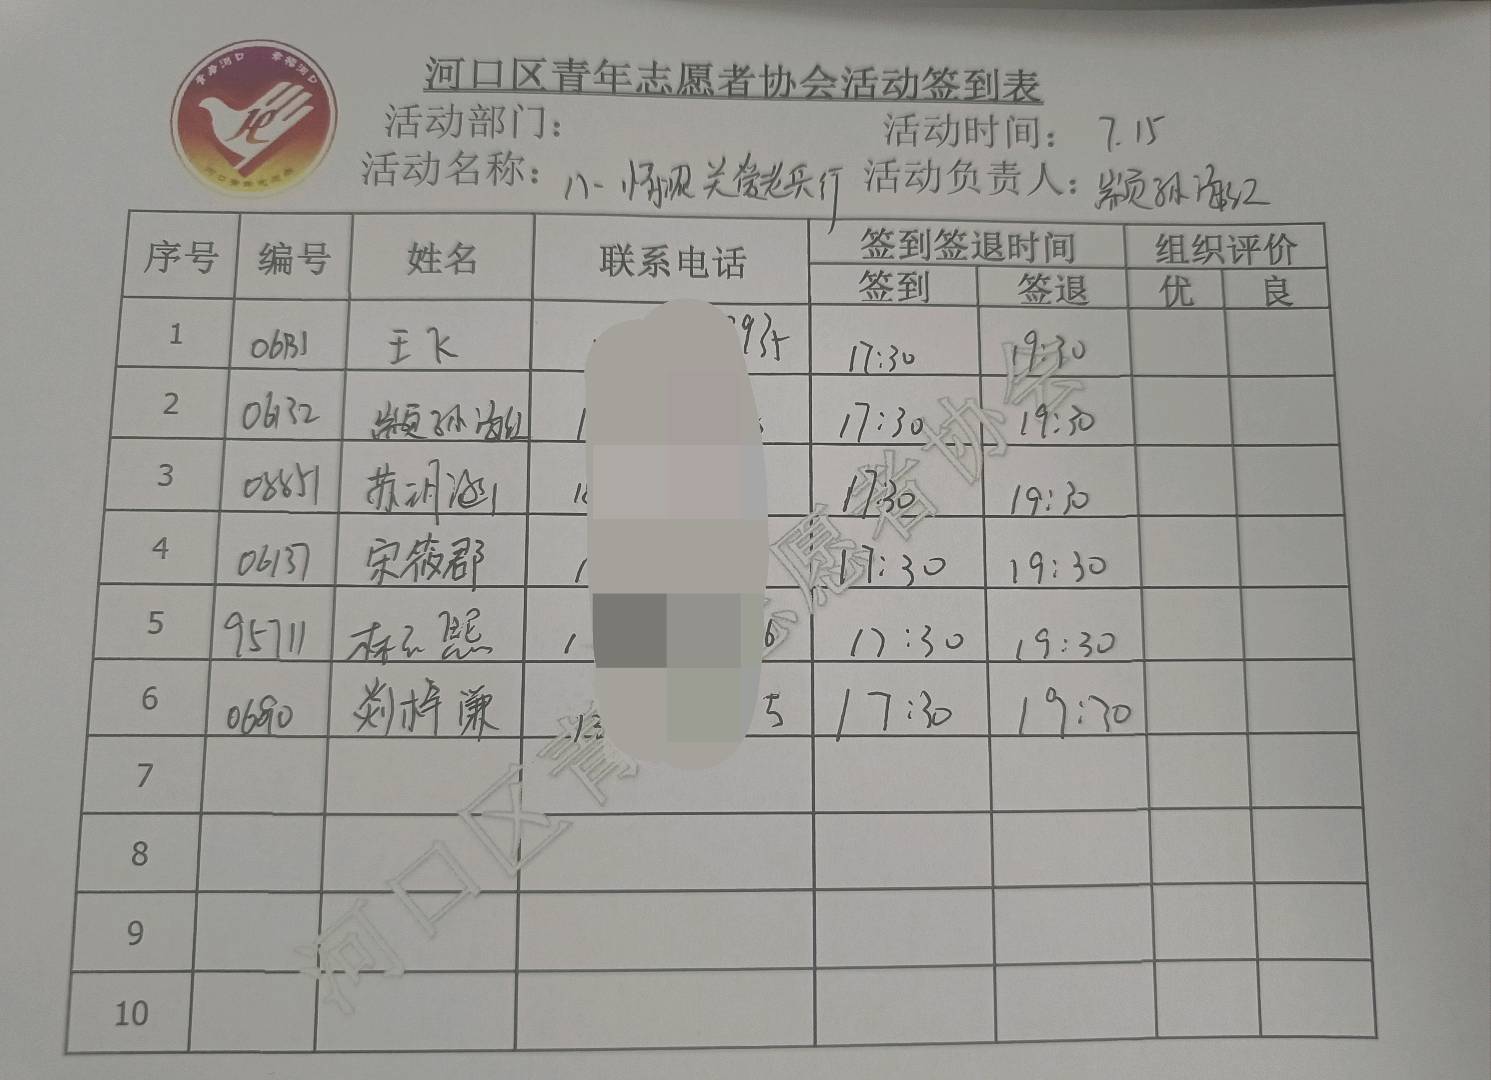 河口区青年志愿者协会活动签到表
活动部门: 活动时间: 7.15
活动名称: 八一 关爱老兵行 活动负责人: 颛孙海红
序号 编号 姓名 联系电话 签到签退时间 组织评价
签到 签退 优 良
1 06131 王飞 17:30 19:30
2 06132 颛孙海红 1 17:30 19:30
3 08851 苏 17:30 19:30
4 06137 宋筱郡 1 17:30 19:30
5 95711 林 熙 1 6 17:30 19:30
6 0690 刘梓谦 13 5 17:30 19:30
7
8
9
10
河口区青 志愿者协会